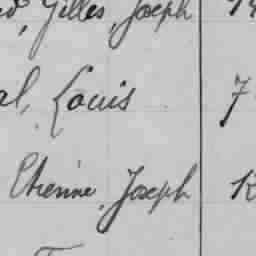 Gilles, Joseph
al, Louis 7
Etienne, Joseph